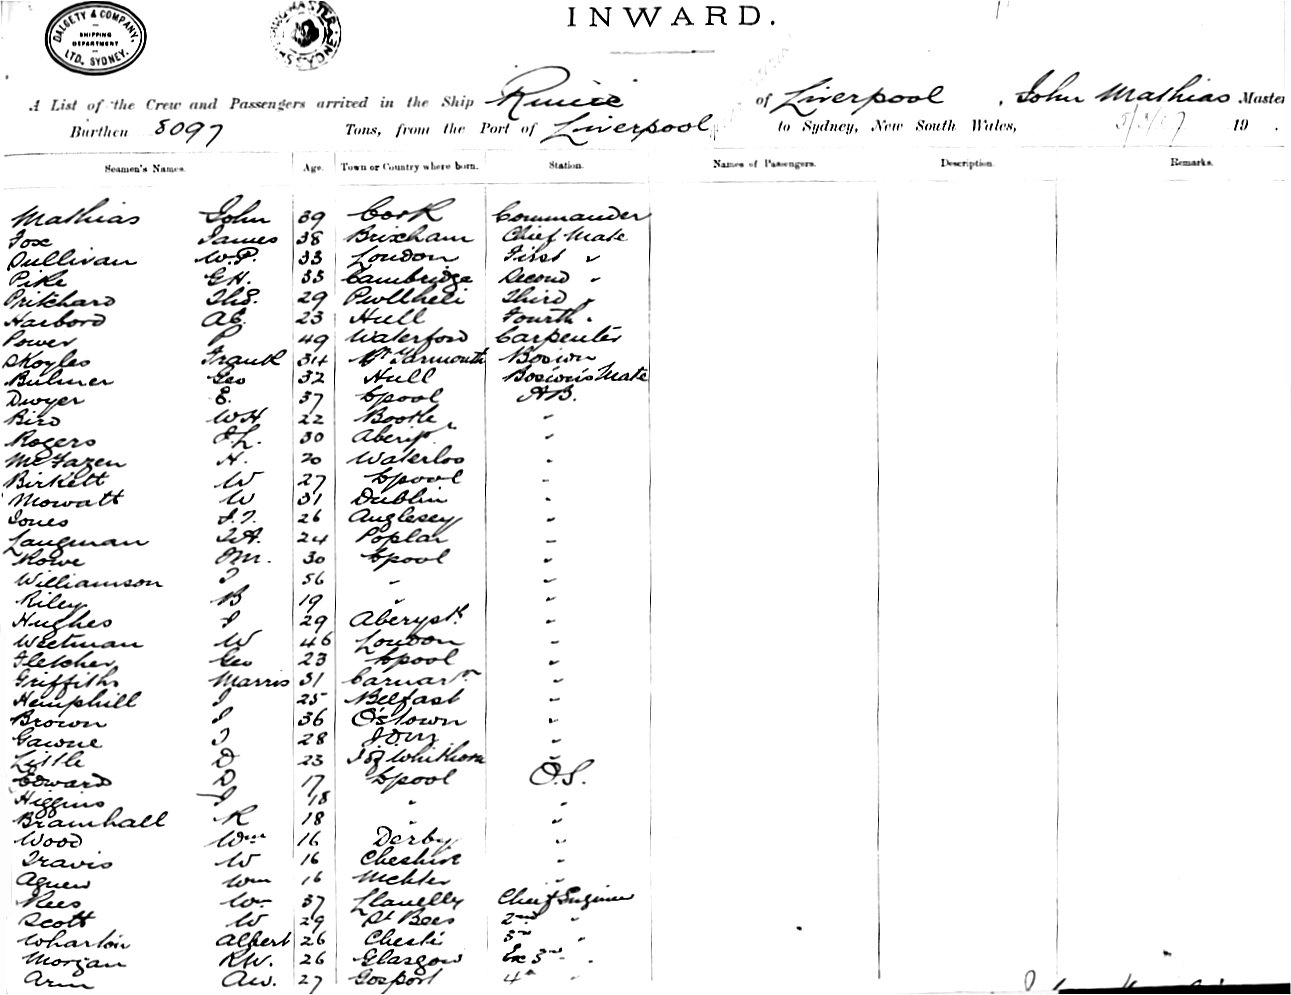 DALGETY & COMPANY, LTD. SYDNEY.
SHIPPING DEPARTMENT
INWARD.
A List of the Crew and Passengers arrived in the Ship Runic of Liverpool, John Mathias Master
Burthen 8097 Tons, from the Port of Liverpool to Sydney, New South Wales, 5/3/07 19 .
Seamen's Names. Age. Town or Country where born. Station. Names of Passengers. Description. Remarks.
Mathias John 39 Cork Commander
Fox James 38 Brixham Chief Mate
Sullivan W.P. 33 London First "
Pike G.H. 33 Cambridge Second "
Pritchard Thos. 29 Pwllheli Third "
Harbord A.E. 23 Hull Fourth "
Power P 49 Waterford Carpenter
Skoyles Frank 34 Gt Yarmouth Bosun
Bulmer Geo 32 Hull Bosun's Mate
Dwyer E. 37 Lpool A.B.
Bird W.H. 22 Bootle "
Rogers J.L. 30 "
McFazen H. 20 Waterloo "
Birkett W 27 Lpool "
Mowatt W 31 Dublin "
Jones J.T. 26 Anglesey "
Langman 24 Poplar "
Rowe 30 Lpool "
Williamson J 56 " "
Riley B 19 " "
Hughes J 29 Aberysth "
Weetman W 46 London "
Fletcher Geo 23 Lpool "
Griffiths Morris 31 Carnarvn "
Hemphill J 25 Belfast "
Brown J 36 Q'stown "
Gawne J 28 I.O.M. "
Little D 23 Whithorn "
Edward D 17 Lpool O.S.
Higgins J 18 " "
Bramhall R 18 " "
Wood Wm 16 Derby "
Travis W 16 Cheshire "
Agnew Wm 16 "
Rees Wm 37 Llanelly Chief Engineer
Scott W 29 St Bees 2nd "
Wharton Albert 26 3rd "
Morgan R.W. 26 Glasgow Ex 3rd "
Arm A.W. 27 Gosport 4th "